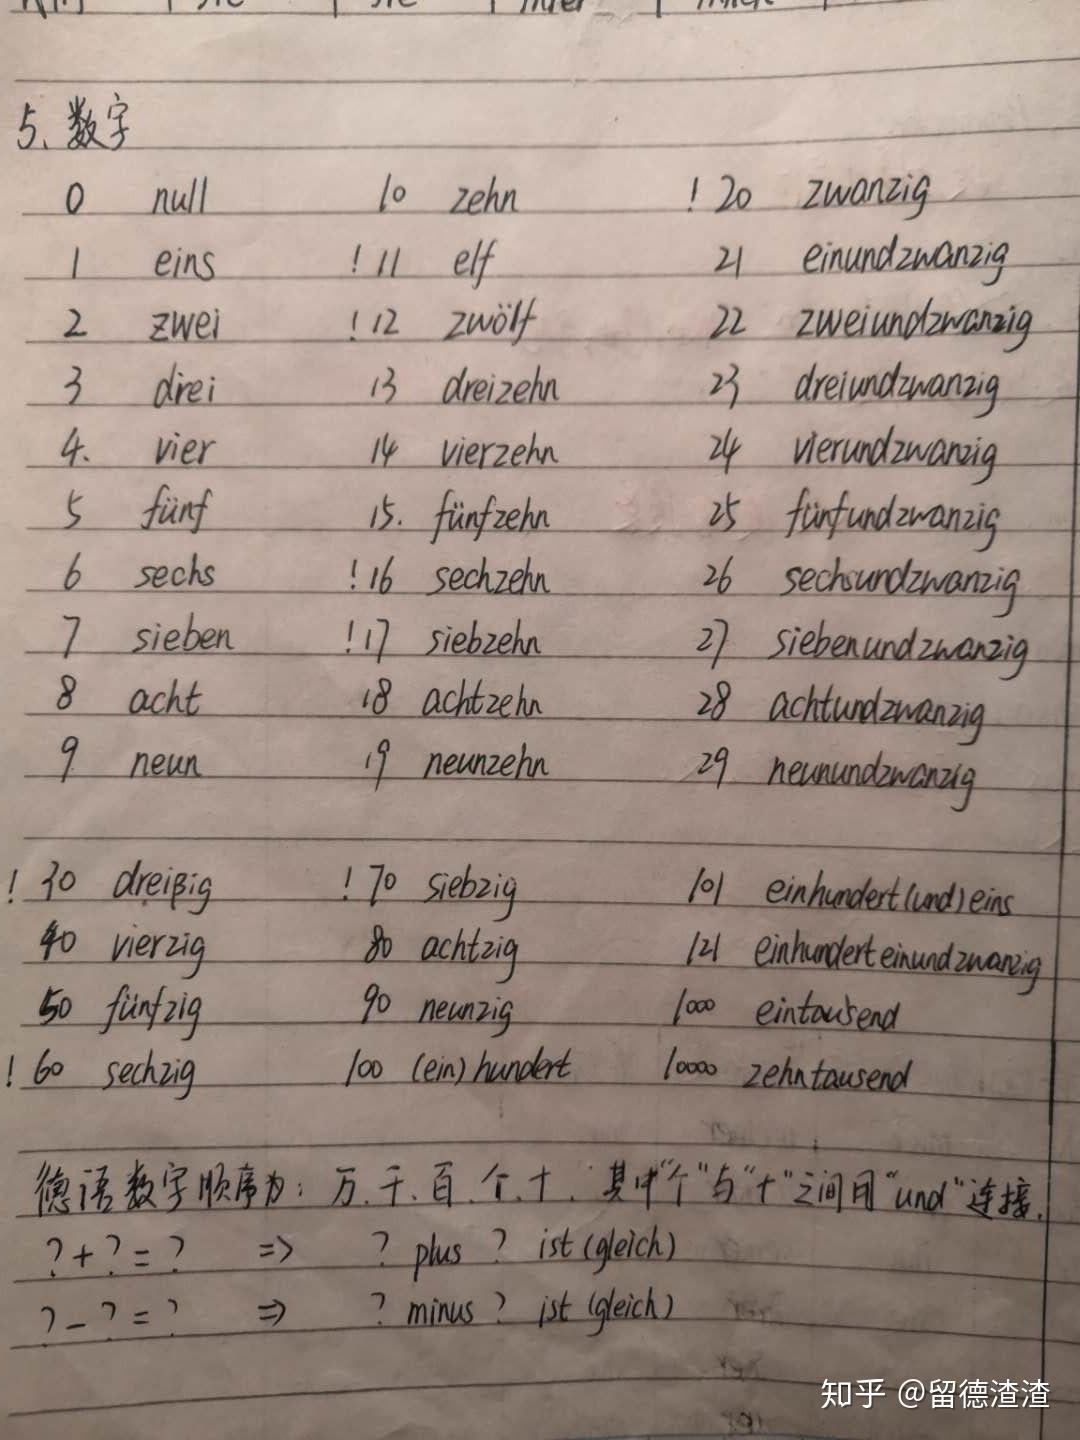 sie sie ihrer
5、数字
0 null 10 zehn ! 20 zwanzig
1 eins ! 11 elf 21 einundzwanzig
2 zwei ! 12 zwölf 22 zweiundzwanzig
3 drei 13 dreizehn 23 dreiundzwanzig
4. vier 14 vierzehn 24 vierundzwanzig
5 fünf 15. fünfzehn 25 fünfundzwanzig
6 sechs ! 16 sechzehn 26 sechsundzwanzig
7 sieben ! 17 siebzehn 27 siebenundzwanzig
8 acht 18 achtzehn 28 achtundzwanzig
9 neun 19 neunzehn 29 neunundzwanzig
! 30 dreißig ! 70 siebzig 101 einhundert(und)eins
40 vierzig 80 achtzig 121 einhunderteinundzwanzig
50 fünfzig 90 neunzig 1000 eintausend
! 60 sechzig 100 (ein)hundert 10000 zehntausend
德语数字顺序为：万、千、百、个、十．其中"个"与"十"之间用"und"连接．
? + ? = ? => ? plus ? ist (gleich)
? - ? = ? => ? minus ? ist (gleich)
知乎 @留德渣渣